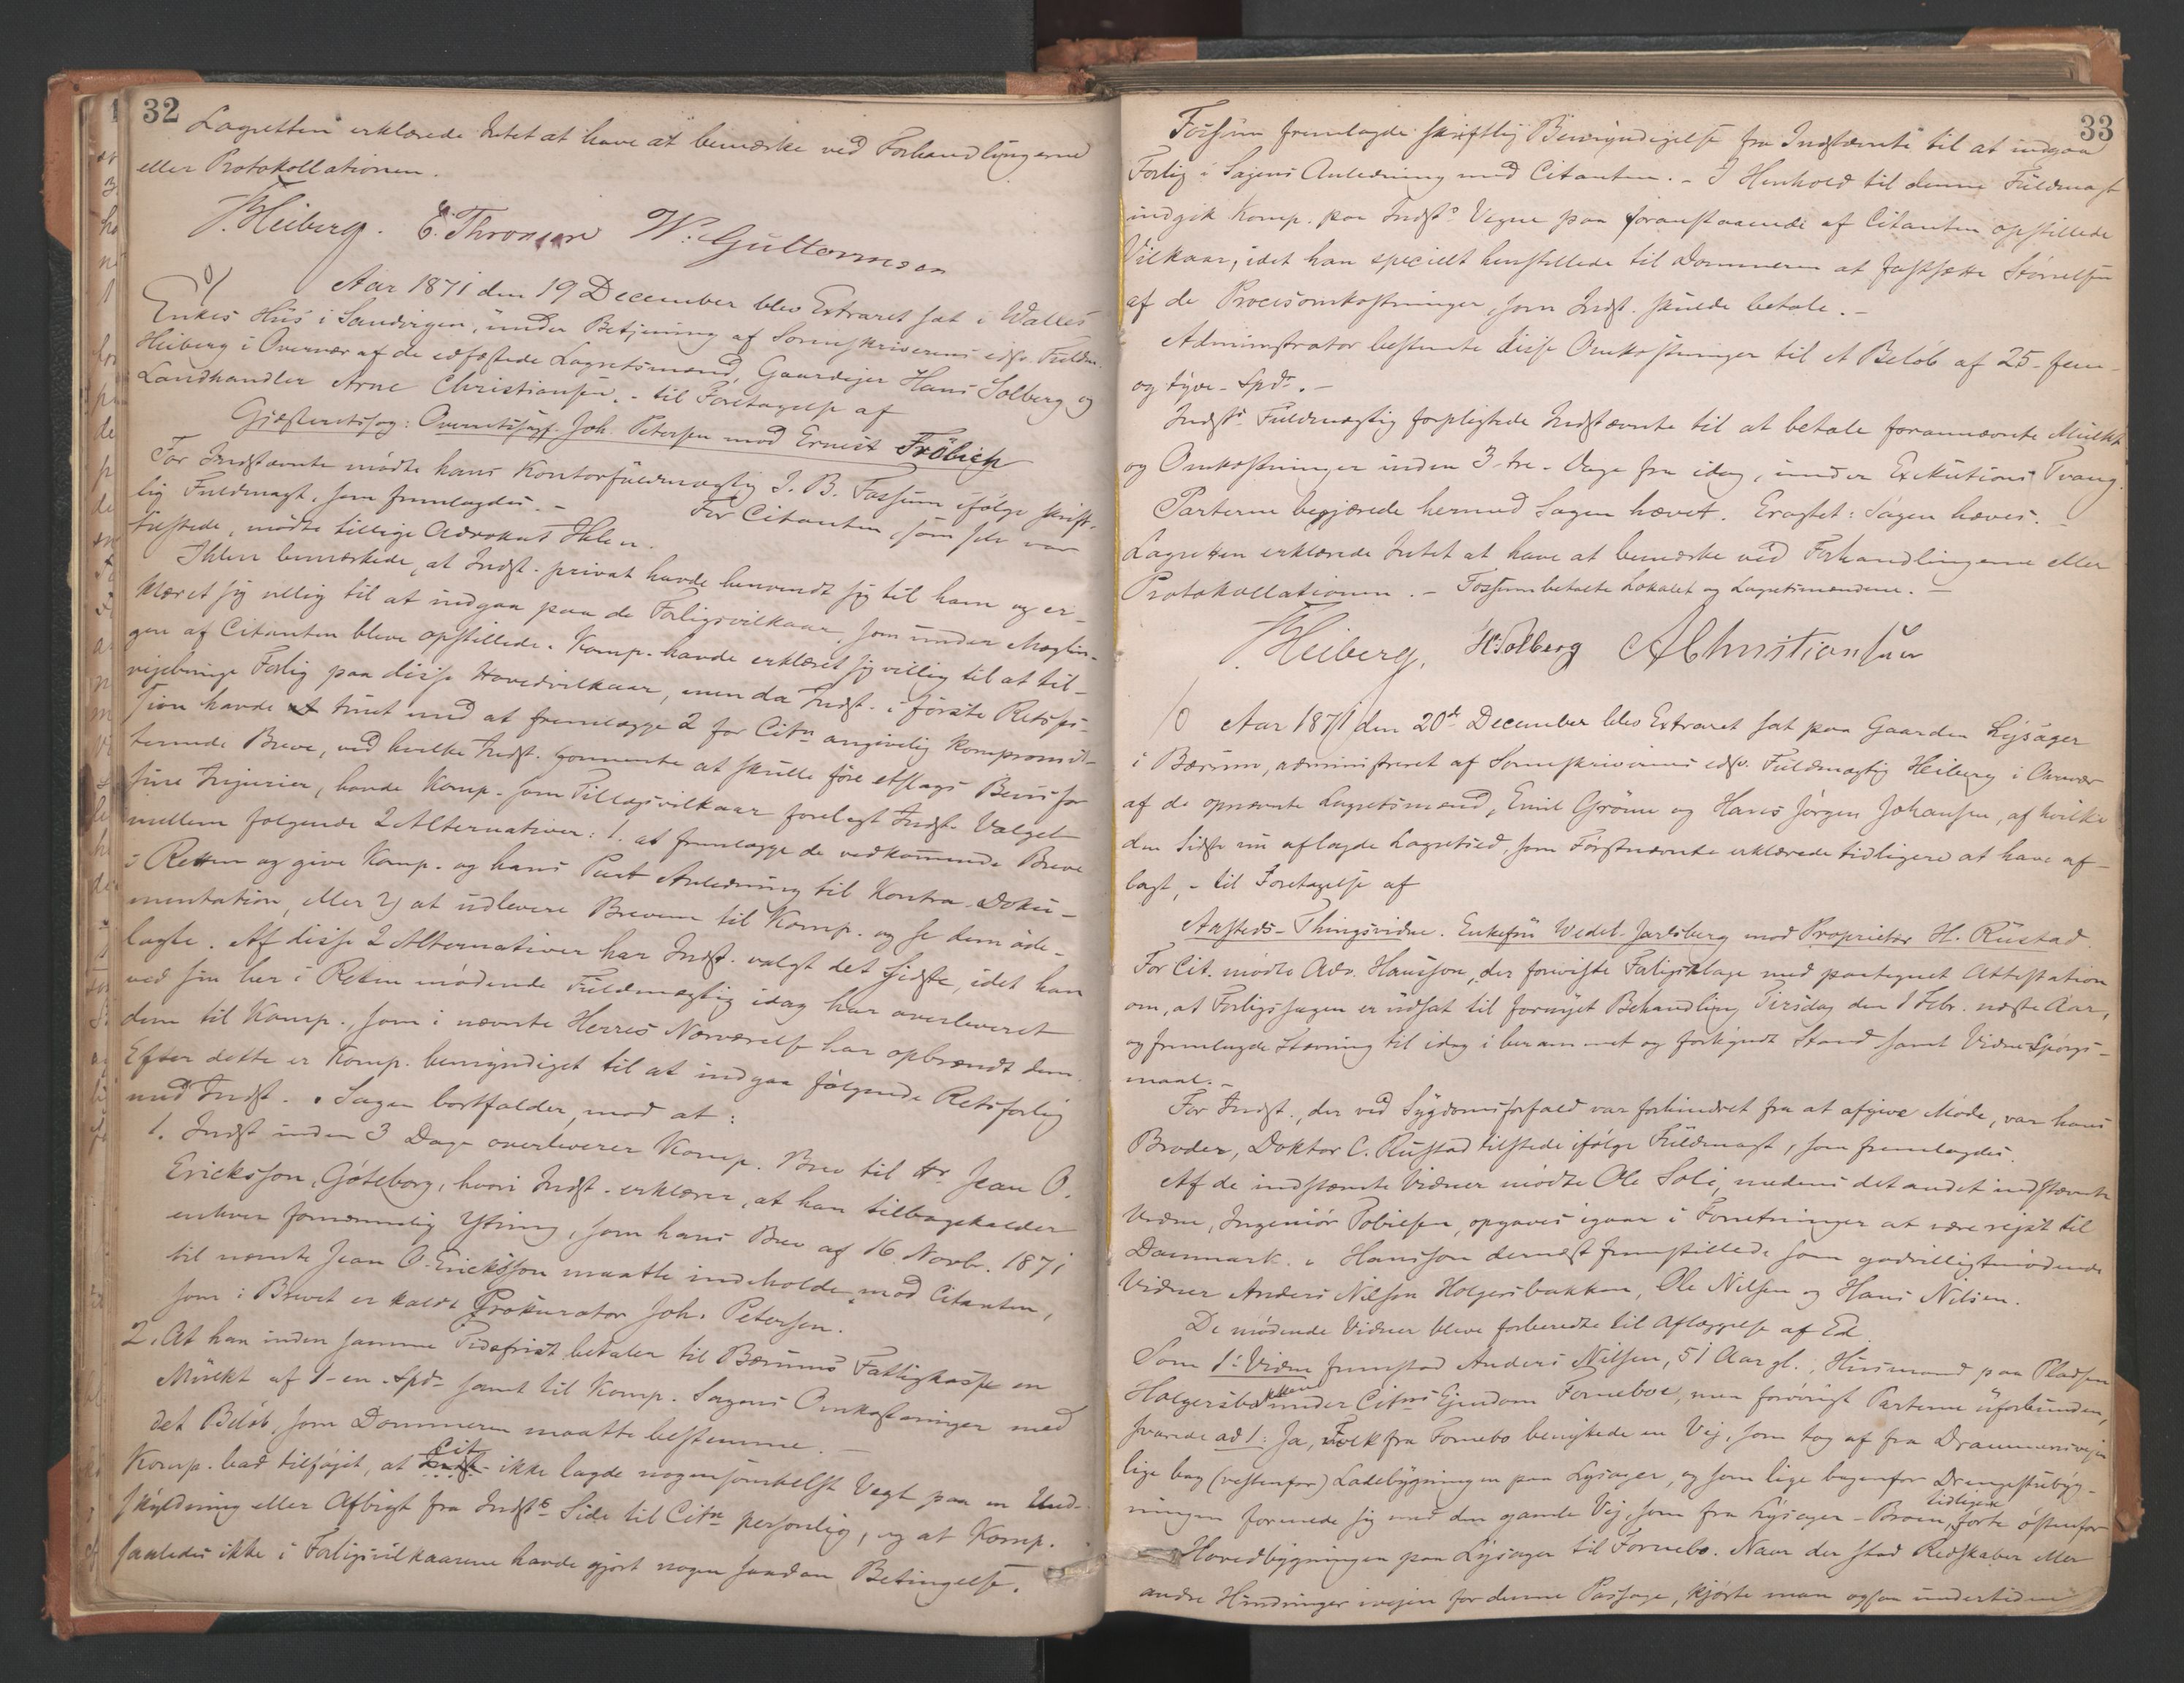 32
Lagretten erklærede Intet at have at bemærke ved Forhandlingerne
eller Protokollationen.
Heiberg. E. Thronsen W. Guttormsen
Aar 1871 den 19 December blev Extraret sat i Walles
Enkes Hus i Sandvigen, under Betjening af Sorenskriverens edsv. Fuldm.
Heiberg i Overvær af de edfæstede Lagretsmænd, Gaardejer Hans Solberg og
Landhandler Arne Christiansen. - til Foretagelse af
Gjæsteretssag: Overretssagf. Joh. Petersen mod Ernest Frölich
For Indstævnte mødte hans Kontorfuldmægtig J. B. Fossum ifølge skrift-
lig Fuldmagt, som fremlagdes. - For Citanten, som selv var
tilstede, mødte tillige Advokat Ihlen.
Ihlen bemærkede, at Indst. privat havde henvendt sig til ham og er-
klæret sig villig til at indgaa paa de Forligsvilkaar, som under Mæglin-
gen af Citanten bleve opstillede. Komp. havde erklæret sig villig til at til-
vejebringe Forlig paa disse Hovedvilkaar, men da Indst. i første Retsses-
sion havde truet med at fremlægge 2 for Citn angivelig kompromit-
terende Breve, ved hvilke Indst. formente at skulle føre etslags Bevis for
sine Injurier, havde Komp. som Tillægsvilkaar forelagt Indst. Valget
mellem følgende 2 Alternativer: 1. at fremlægge de vedkommende Breve
i Retten og give Komp. og hans Part Anledning til Kontra-Doku-
mentation, eller 2) at udlevere Brevene til Komp. og se dem øde-
lagte. Af disse 2 Alternativer har Indst. valgt det sidste, idet han
ved sin her i Retten mødende Fuldmægtig idag har overleveret
dem til Komp., som i nævnte Herres Nærværelse har opbrændt dem.
Efter dette er Komp. bemyndiget til at indgaa følgende Retsforlig
med Indst. . Sagen bortfalder, mod at:
1. Indst inden 3 Dage overleverer Komp. Brev til Hr. Jean O.
Ericksson, Göteborg, hvori Indst. erklærer, at han tilbagekalder
enhver fornærmelig Ytring, som hans Brev af 16 Novbr. 1871
til nævnte Jean O. Ericksson maatte indeholde mod Citanten,
som i Brevet er kaldt Prokurator Joh. Petersen.
2. At han inden samme Tidsfrist betaler til Bærums Fattigkasse en
Mulkt af 1-en-Spd. samt til Komp. Sagens Omkostninger med
det Beløb, som Dommeren maatte bestemme. -
Komp. bad tilføjet, at Cit. ikke lagde nogensomhelst Vegt paa en Und-
skyldning eller Afbigt fra Indsts Side til Citn personlig, og at Komp.
saaledes ikke i Forligsvilkaarene havde gjort nogen saadan Betingelse.
33
Fossum fremlagde skriftlig Bemyndigelse fra Indstævnte til at indgaa
Forlig i Sagens Anledning med Citanten. - I Henhold til denne Fuldmagt
indgik Komp. paa Indsts Vegne paa foranstaaende af Citanten opstillede
Vilkaar, idet han specielt henstillede til Dommeren at fastsætte Størrelsen
af de Procesomkostninger, som Indst. skulde betale. -
Administrator bestemte disse Omkostninger til et Beløb af 25-fem-
og tyve-Spdr. -
Indsts Fuldmægtig forpligtede Indstævnte til at betale forannævnte Mulkt
og Omkostninger inden 3-tre-Dage fra idag, under Exekutions Tvang.
Parterne begjærede hermed Sagen hævet. Eragtet: Sagen hæves. -
Lagretten erklærede Intet at have at bemærke ved Forhandlingerne eller
Protokollationen. - Fossum betalte Lokalet og Lagretsmændene. -
Heiberg, H Solberg AChristiansen
Aar 1871 den 20de December blev Extraret sat paa Gaarden Lysager
i Bærum, administreret af Sorenskriverens edsv. Fuldmægtig Heiberg i Overvær
af de opnævnte Lagretsmænd, Emil Grønn og Hans Jørgen Johansen, af hvilke
den Sidste nu aflagde Lagretsed, som Førstnævnte erklærede tidligere at have af-
lagt, - til Foretagelse af
Aasteds-Thingsvidne. Enkefru Wedel-Jarlsberg mod Proprietær H. Rustad.
For Cit. mødte Adv. Hansson, der foreviste Forligsklage med paategnet Attestation
om, at Forligssagen er udsat til fornyet Behandling Tirsdag den 1 Febr. næste Aar,
og fremlagde Stævning til idag i berammet og forkyndt Stand samt Vidne-Spørgs-
maal. -
For Indst., der ved Sygdomsforfald var forhindret fra at afgive Møde, var hans
Broder, Doktor C. Rustad tilstede ifølge Fuldmagt, som fremlagdes.
Af de indstævnte Vidner mødte Ole Soli, medens det andet indstævnte
Vidne, Ingeniør Tobiesen, opgaves igaar i Forretninger at være rejst til
Danmark. Hansson dernæst fremstillede som godvilligt mødende
Vidner Anders Nilsen Holgersbakken, Ole Nilsen og Hans Nilsen.
De mødende Vidner bleve forberedte til Aflæggelse af Ed.
Som 1ste Vidne fremstod Anders Nilsen, 51 Aar gl., Husmand paa Pladsen
Holgersbakken under Citns Ejendom Forneboe, men forøvrigt Parterne uforbunden,
svarede ad 1: Ja, Folk fra Fornebo benyttede en Vej, som tog af fra Drammensvejen
lige bag (vestenfor) Ladebygningen paa Lysager, og som lige bagenfor Drengestubyg-
ningen forenede sig med den gamle Vej, som fra Lysager-Broen, tidligere førte østenfor
Hovedbygningen paa Lysager til Fornebo. Naar der stod Redskaber eller
andre Hindringer ivejen for denne Passage, kjørte man ogsaa undertiden